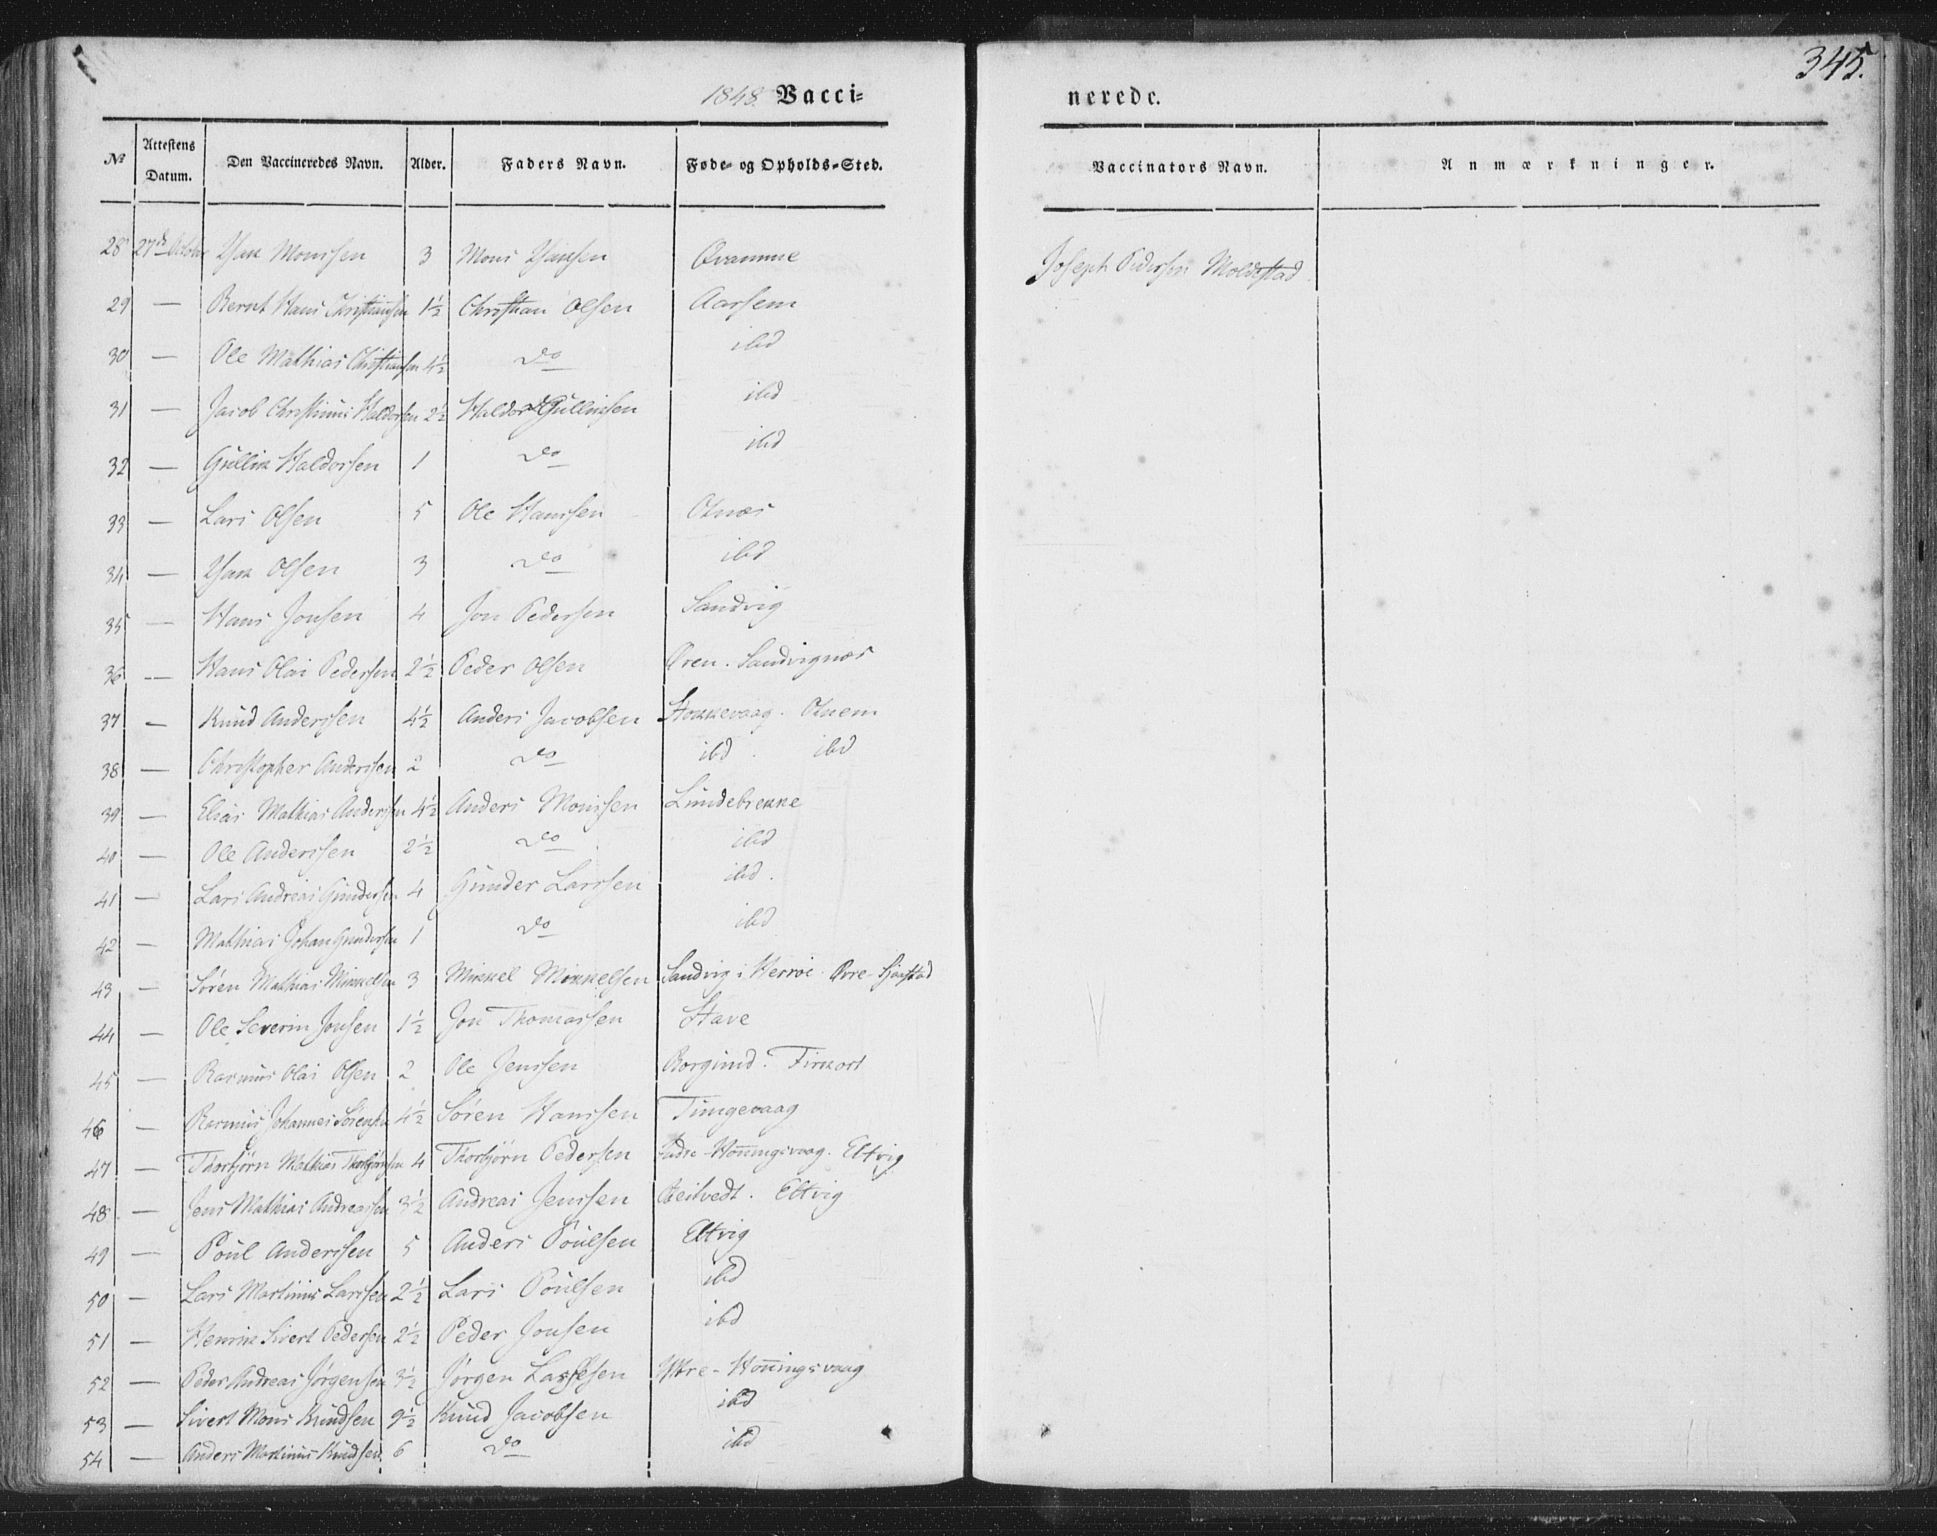 345.
1848. Vacci=
nerede.
No Attestens Datum. Den Vaccineredes Navn. Alder. Faders Navn. Føde- og Opholds-Sted.
Vaccinators Navn. Anmærkninger.
28 27de October Monssen 3 Mons Qvamme Joseph Pedersen Moldestad.
29 — Bernt Hans Christiansen 1½ Christian Olsen Aarsem
30 — Ole Mathias Christiansen 4½ do ibd
31 — Jacob Christinus Haldorsen 2½ Haldor Gulliksen ibd
32 — Gullik Haldorsen 1 do ibd
33 — Lars Olsen 5 Ole Hanssen Otnæs
34 — Olsen 3 do ibd
35 — Hans Jonsen 4 Jon Pedersen Sandvig
36 — Hans Olai Pedersen 2½ Peder Olsen Øren. Sandvignæs
37 — Knud Anderssen 4½ Anders Jacobsen Stokkevaag. Otnem
38 — Christopher Anderssen 2 do ibd. ibd
39 — Elias Mathias Anderssen 4½ Anders Monssen Lundebrekke
40 — Ole Anderssen 2½ do ibd
41 — Lars Andreas Gundersen 4 Gunder Larssen ibd.
42 — Mathias Johan Gundersen 1 do ibd
43 — Søren Mathias Mikkelsen 3 Mikkel Mikkelsen Sandvig i Herröe. Øvre-
44 — Ole Severin Jonsen 1½ Jon Thomassen Stave
45 — Rasmus Olai Olsen 2 Ole Jenssen Borgund.
46 — Rasmus Johannes Sørensen 4½ Søren Hanssen Tungevaag
47 — Thorbjørn Mathias Thorbjørnsen 4 Thorbjørn Pedersen Indre-Honningsvaag. Eltvig
48 — Jens Mathias Andreassen 3½ Andreas Jenssen Eltvig
49 — Poul Anderssen 5 Anders Poulsen Eltvig
50 — Lars Martinus Larssen 2½ Lars Poulsen ibd
51 — Henrik Sivert Pedersen 2½ Peder Jonsen ibd
52 — Peder Andreas Jørgensen 3½ Jørgen Lassesen Yttre-Honningsvaag
53 — Sivert Mons Knudsen 9½ Knud Jacobsen ibd
54 — Anders Martinus Knudsen 6 do ibd